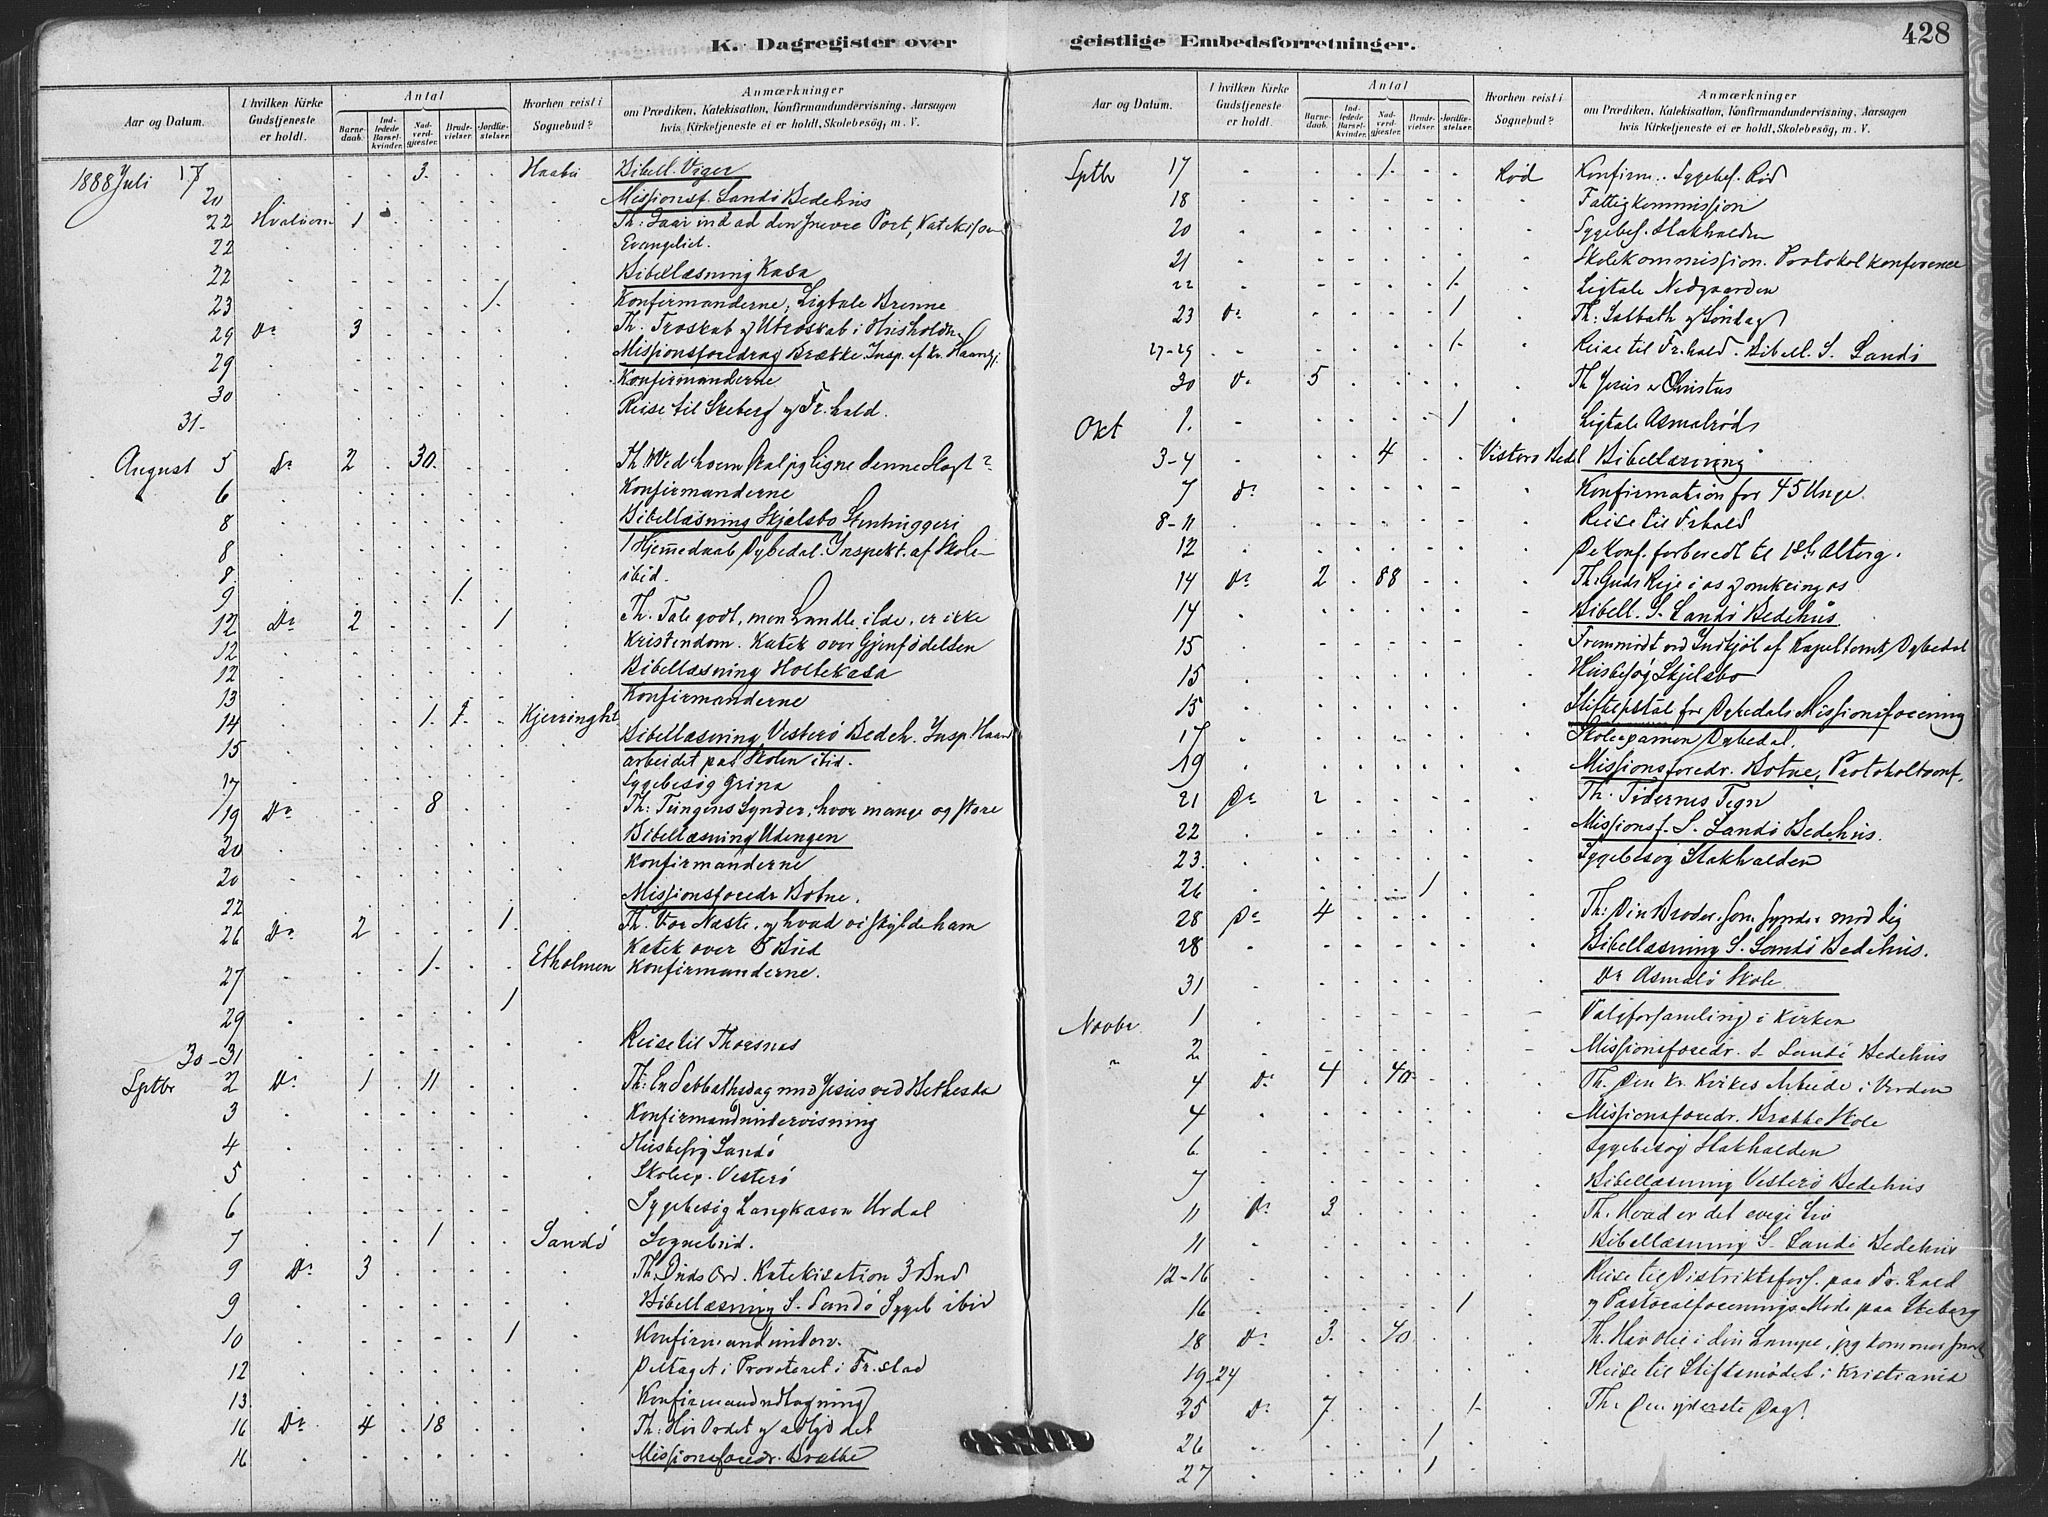 428
K. Dagregister over geistlige Embedsforretninger.
Aar og Datum.
I hvilken Kirke Gudstjeneste er holdt.
Antal
Barnedaab.
Indledede Barselkvinder.
Nadverdgjæster.
Brudevielser.
Jordfæstelser.
Hvorhen reist i Sognebud?
Anmærkninger
om Prædiken, Katekisation, Konfirmandundervisning, Aarsagen
hvis Kirketjeneste ei er holdt, Skolebesøg, m. V.
1888 Juli 17 3. Bibell. Viger
20 Missionsf. Sandö Bedehus
22 Hvaløern 1 Th: Gaar ind ad den snevre Port, Katekis. over
22 Evangeliet.
22 Bibellæsning Kasa
23 1. Konfirmanderne, Ligtale Brenne
29 Do 3 Th. Troskab og Utroskab i Husholdn.
29 Missionsforedrag Brække Insp. af
30 Konfirmanderne
31- Reise til Skeberg og Fr.hald.
August 5 Do 2 30. Th. Ved hvem skal jeg ligne denne Slægt?
6 Konfirmanderne
8 Bibellæsning Skjælsbo Stenhuggeri
8 1 Hjemmedaab Dybedal. Inspekt. af Skole
8 ibid.
9 1.
12 Do 2 1 Th. Tale godt, men handle ilde, er ikke
12 Kristendom. Katek over Gjenfødelsen
12 Bibellæsning Holtekasa
13 Konfirmanderne
14 1. 1. Kjerringht Bibellæsning Vesterö Bedeh. Insp. Haand
15 arbeidet paa Skolen ibid.
17 Sygebesøg Grina
19 Do 8 Th: Tungens Synder, hvor mange og store
20 Bibellæsning Udengen
20 Konfirmanderne
22 Missionsforedr Botne.
26 Do 2 1. Th. Vor Næste, og hvad vi skylde ham
Katek over 5 Bud
27 1. Etholmen Konfirmanderne.
29 1
30-31 Reise til Thorsnæs
Sptbr 2 Do 1 11 Th: En Sabbathsdag med Jesus ved Bethesda
3 Konfirmandundervisning
4 Husbesøg Sandö
5 Skoleex. Vesterö
6 Sygebesøg Langkasen Urdal
7 1 Sandö Sognebud.
9 Do 3 Th. Guds Ord. Katekisation 3 Bud
9 Bibellæsning S. Sandö Sygeb ibid
10 1 Konfirmandunderv.
12 Deltaget i Provsteret i Fr.stad
13. Konfirmandudtagning
16 Do 4 18 Th: Hör Ordet og adlyd det
16 Missionsforedr. Brække
Aar og Datum.
I hvilken Kirke Gudstjeneste er holdt.
Antal
Barnedaab.
Indledede Barselkvinder.
Nadverdgjæster.
Brudevielser.
Jordfæstelser.
Hvorhen reist i Sognebud?
Anmærkninger
om Prædiken, Katekisation, Konfirmandundervisning, Aarsagen
hvis Kirketjeneste ei er holdt, Skolebesøg, m. V.
Sptbr 17 1. Rød Konfirm. Sygebes. Röd
18 Fattigkommission
20 Sygebes. Stakhalden
21 Skolekommission. Protokolkonference
22 1. Ligtale Nedgaarden
23 Do 1 Th: Sabbath og Søndag
27-29 1. Reise til Fr.hald. Bibell. S. Sandö
30 Do 5 Th Jesus er Christus
Okt 1. 1 Ligtale Asmalröd
3-4 4 Vesterö Bedh Bibellæsning
7 Do Konfirmation for 45 Unge.
8-11 Reise til Frhald
12 De Konf. forberedt til 1ste Alterg.
14 Do 2 88 Th: Guds Rige i os og omkring os
14 Bibell. S. Sandö Bedehus
15 Fremmødt ved Indkjöb af Kapeltomt Dybedal
15 Husbesøg Skjelsbo
15 Stiftelsestal for Dybedals Missionsforening
17 Skoleexamen Dybedal.
19 Missionsforedr. Botne, Protokolkonf.
21 Do 2 Th. Tidernes Tegn
22 Missionsf. S. Sandö Bedehus.
23. Sygebesøg Stakhalden
26 1
28 Do 4 Th: Din Broder som synder mod dig
28 Bibellæsning S. Sandö Bedehus.
31 Do Asmalö Skole
Novbr 1 Valgforsamling i Kirken
" 2 Missionsforedr. S. Sandö Bedehus
4 Do 4 40 Th. Den kr. Kirkes Arbeide i Verden
4 Missionsforedr. Brække Skole
6. Sygebesøg Stakhalden
7 Bibellæsning Vesterö Bedehus
11 Do 3 Th. Hvad er det evige Liv
11 Bibellæsning S. Sandö Bedehus
12-16 Reise til Distriktsfors. paa Fr.hald
16 1 og Pastoralforenings Møde paa Skeberg
18 Do 3. 40 Th. Hav olie i din Lampe, jeg kommer snart
19-24 Reise til Stiftsmødet i Kristiania
25 Do 7 1. Th. Den yderste Dag.
26 1
27 1